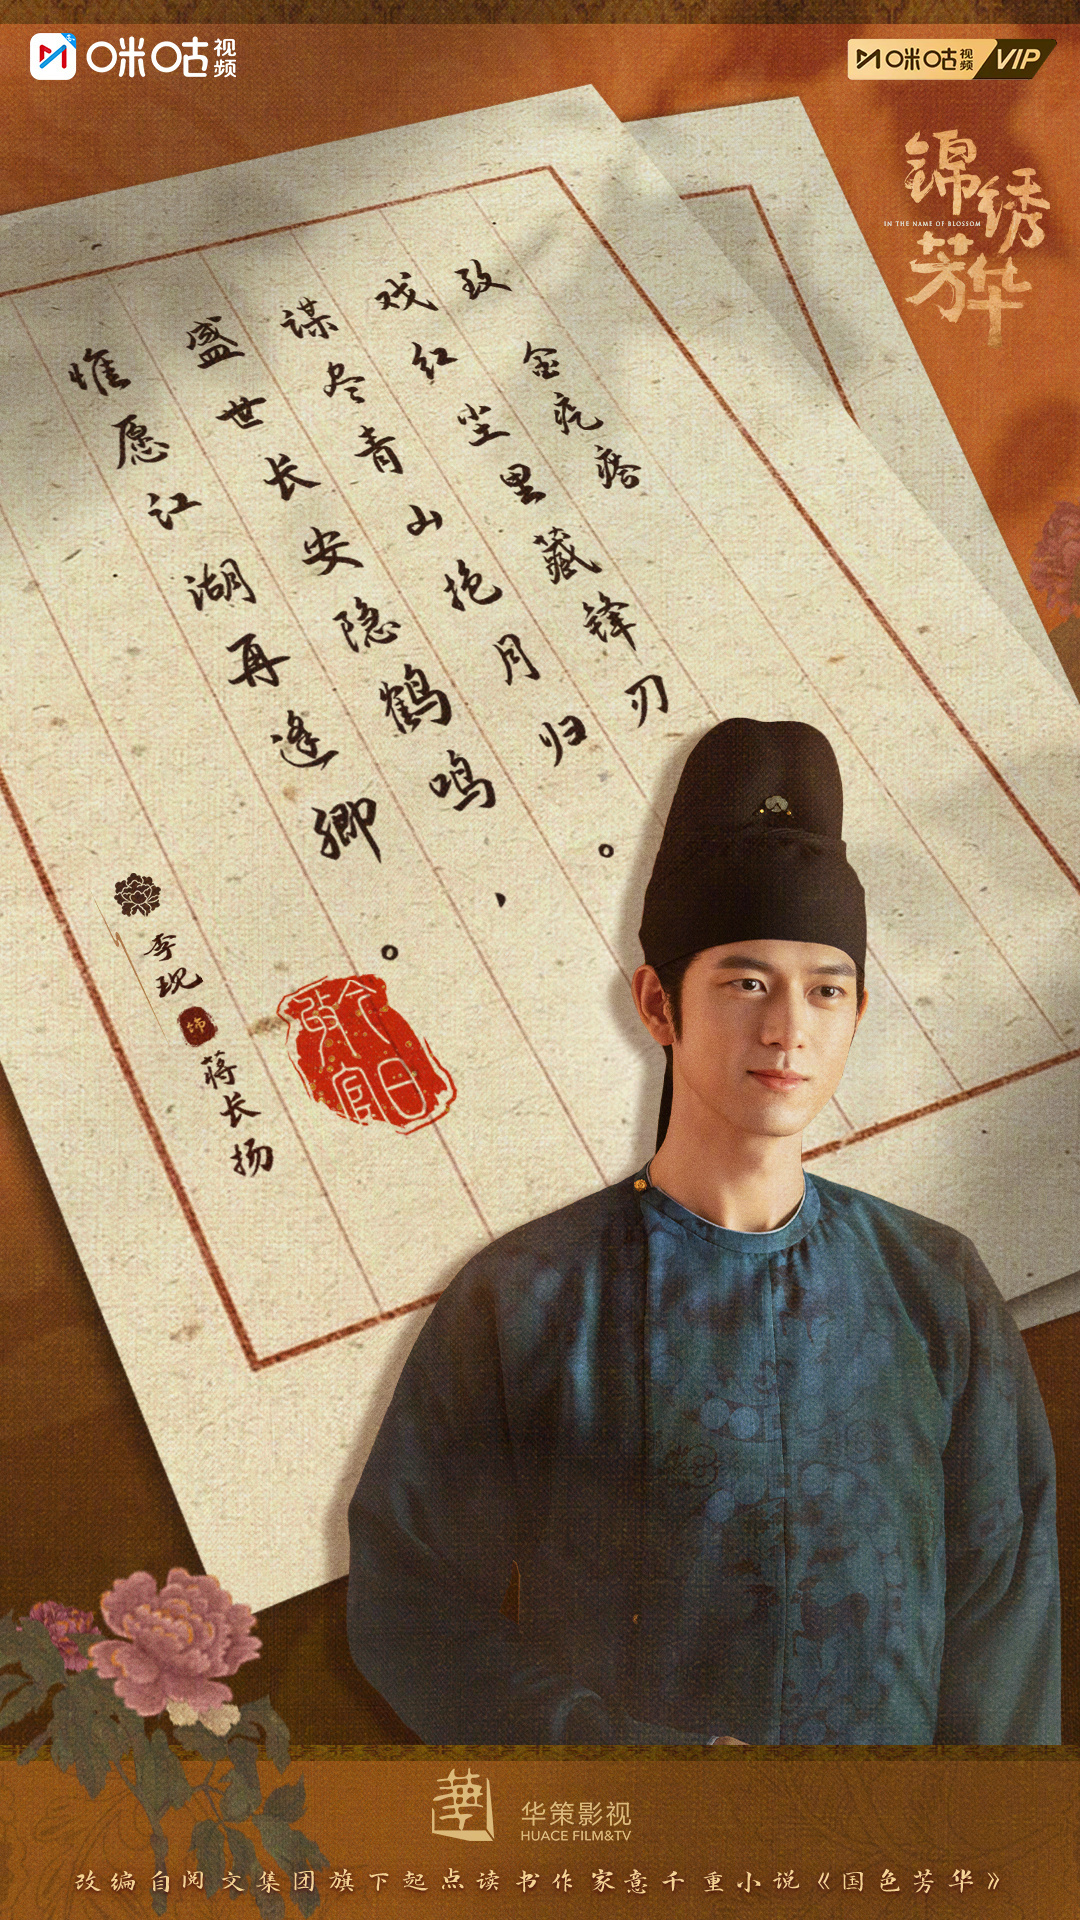 咪咕视频
咪咕视频 VIP
锦绣芳华
IN THE NAME OF BLOSSOM
致 金疙瘩
戏红尘里藏锋刃
谋尽青山抱月归。
盛世长安隐鹤鸣、
惟愿江湖再逢卿。
李现 饰 蒋长扬
今日
官
华策影视
HUACE FILM&TV
改编自阅文集团旗下起点读书作家意千重小说《国色芳华》